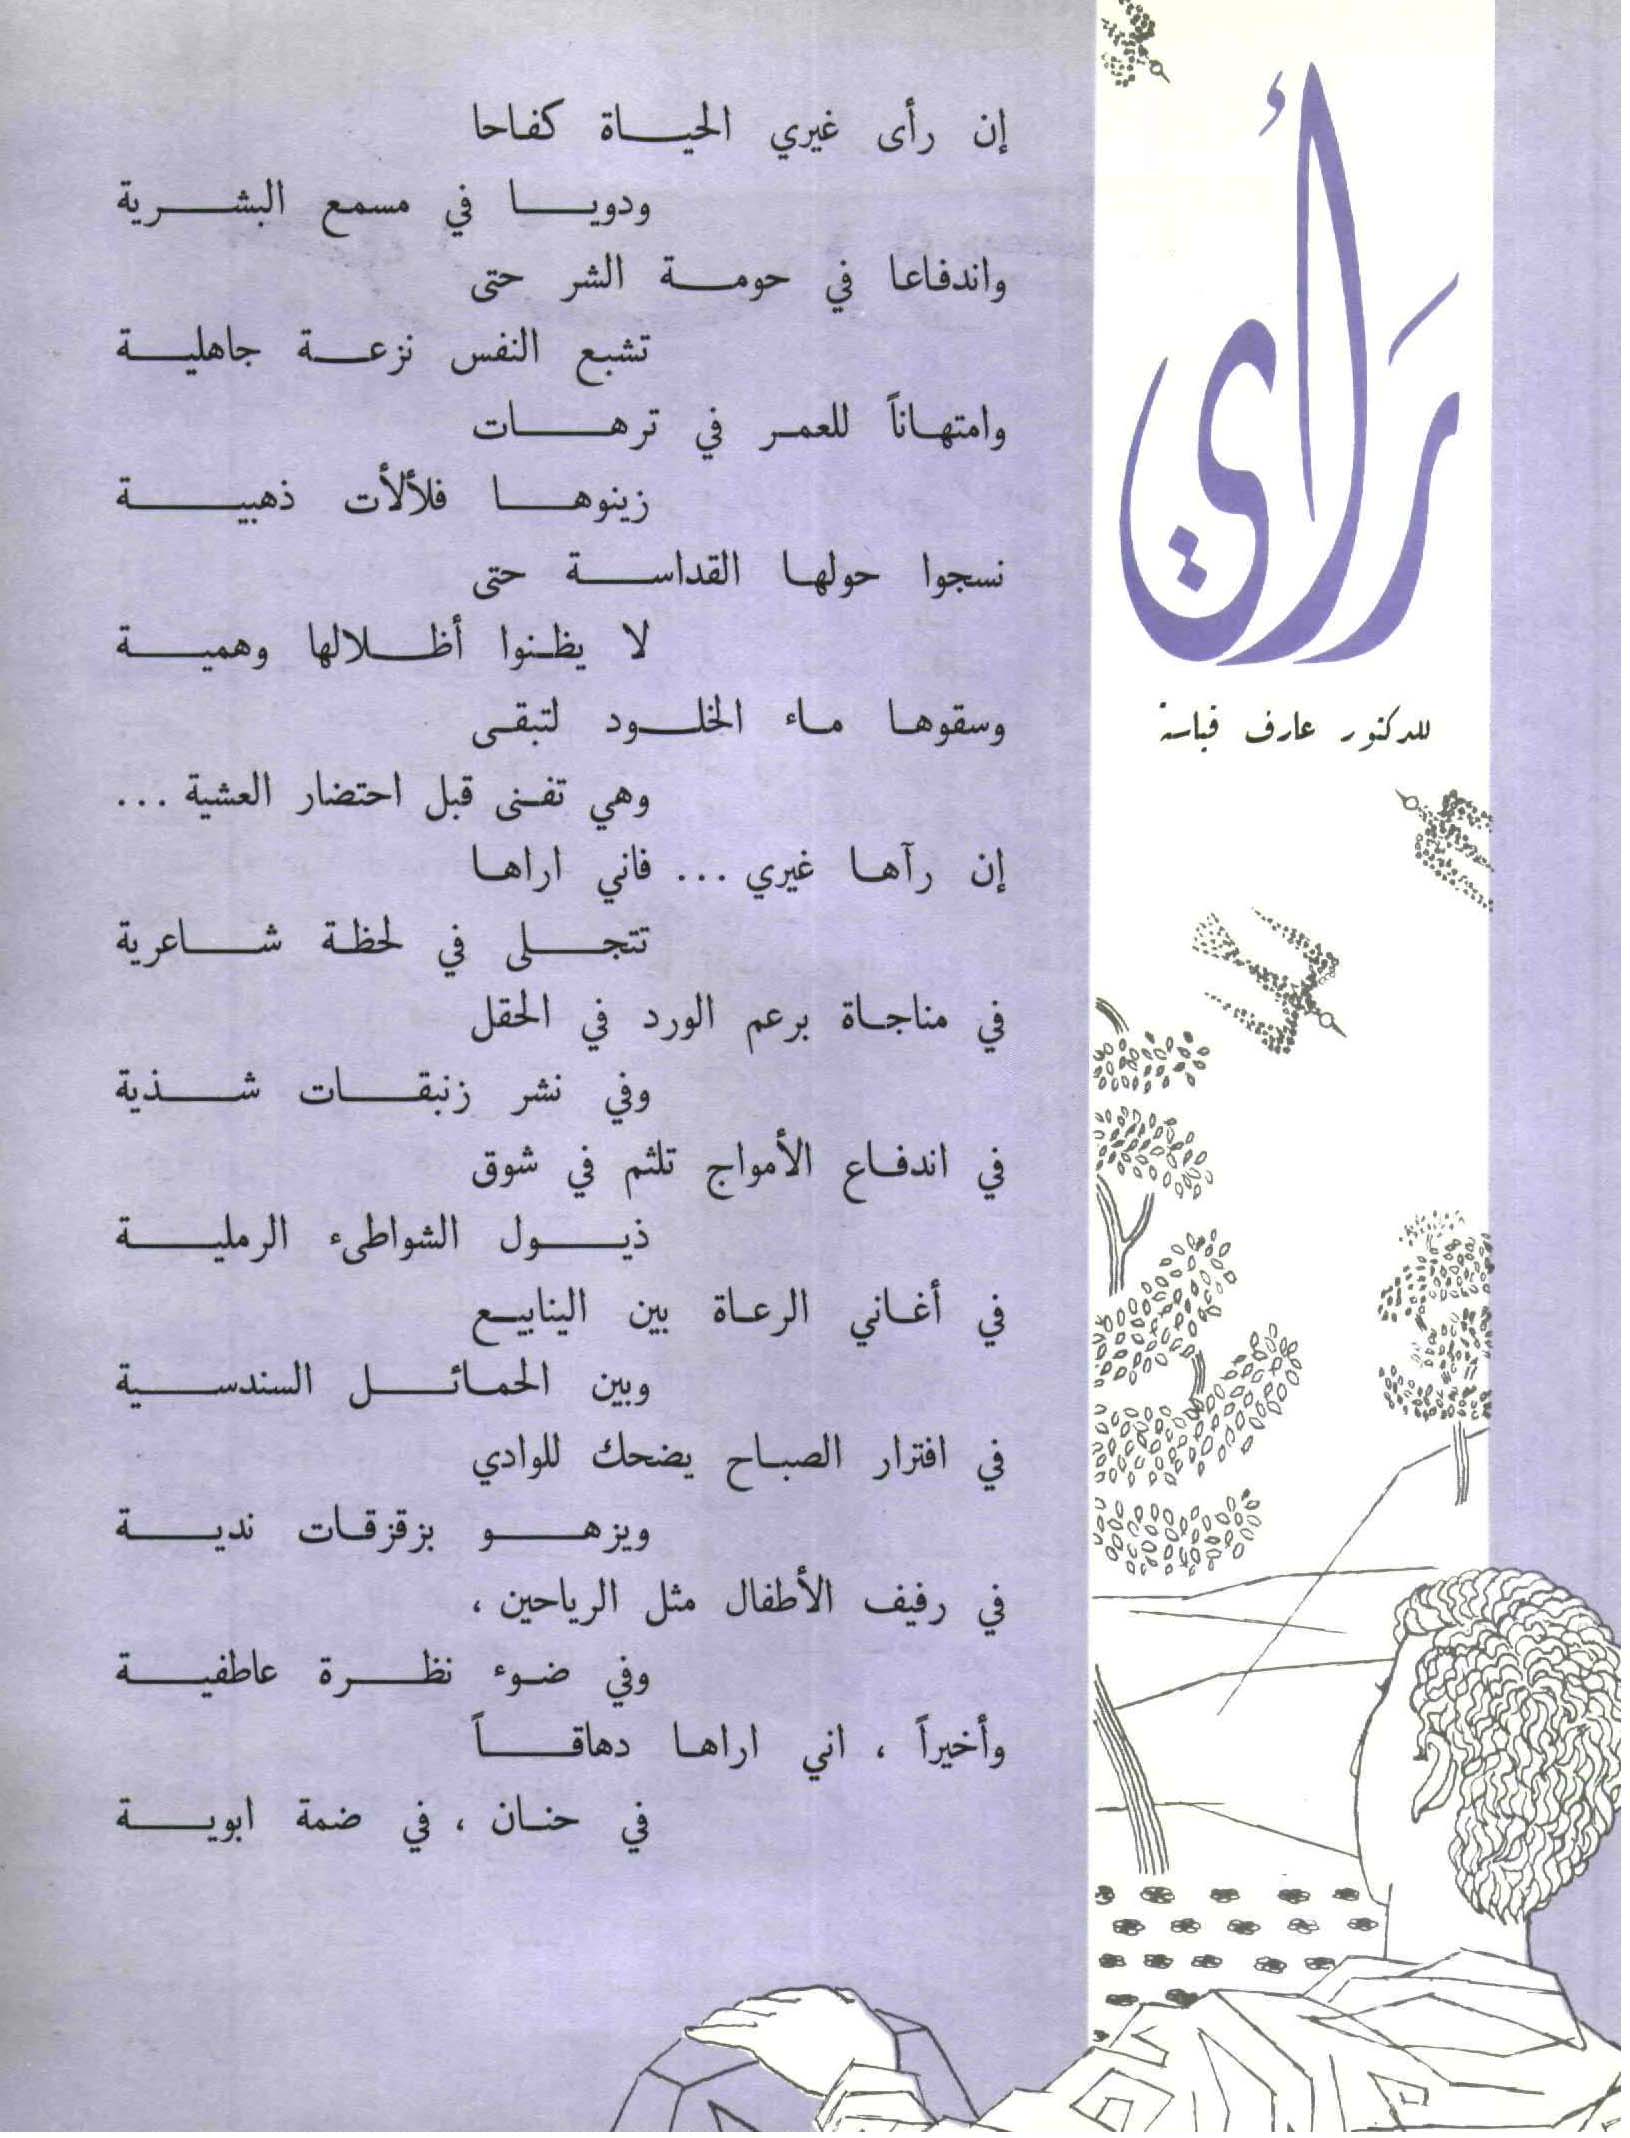 رأي
للدكتور عارف قياسة
إن رأى غيري الحياة كفاحا
ودويا في مسمع البشرية
واندفاعا في حومة الشر حتى
تشبع النفس نزعة جاهلية
وامتهاناً للعمر في ترهات
زينوها فلألأت ذهبية
نسجوا حولها القداسة حتى
لا يظنوا أظلالها وهمية
وسقوها ماء الخلود لتبقى
وهي تفنى قبل احتضار العشية ...
إن رآها غيري ... فاني اراها
تتجلى في لحظة شاعرية
في مناجاة برعم الورد في الحقل
وفي نشر زنبقات شذية
في اندفاع الأمواج تلثم في شوق
ذيول الشواطىء الرملية
في أغاني الرعاة بين الينابيع
وبين الخمائل السندسية
في افترار الصباح يضحك للوادي
ويزهو بزقزقات ندية
في رفيف الأطفال مثل الرياحين ،
وفي ضوء نظرة عاطفية
وأخيراً ، اني اراها دهاقاً
في حنان ، في ضمة ابوية